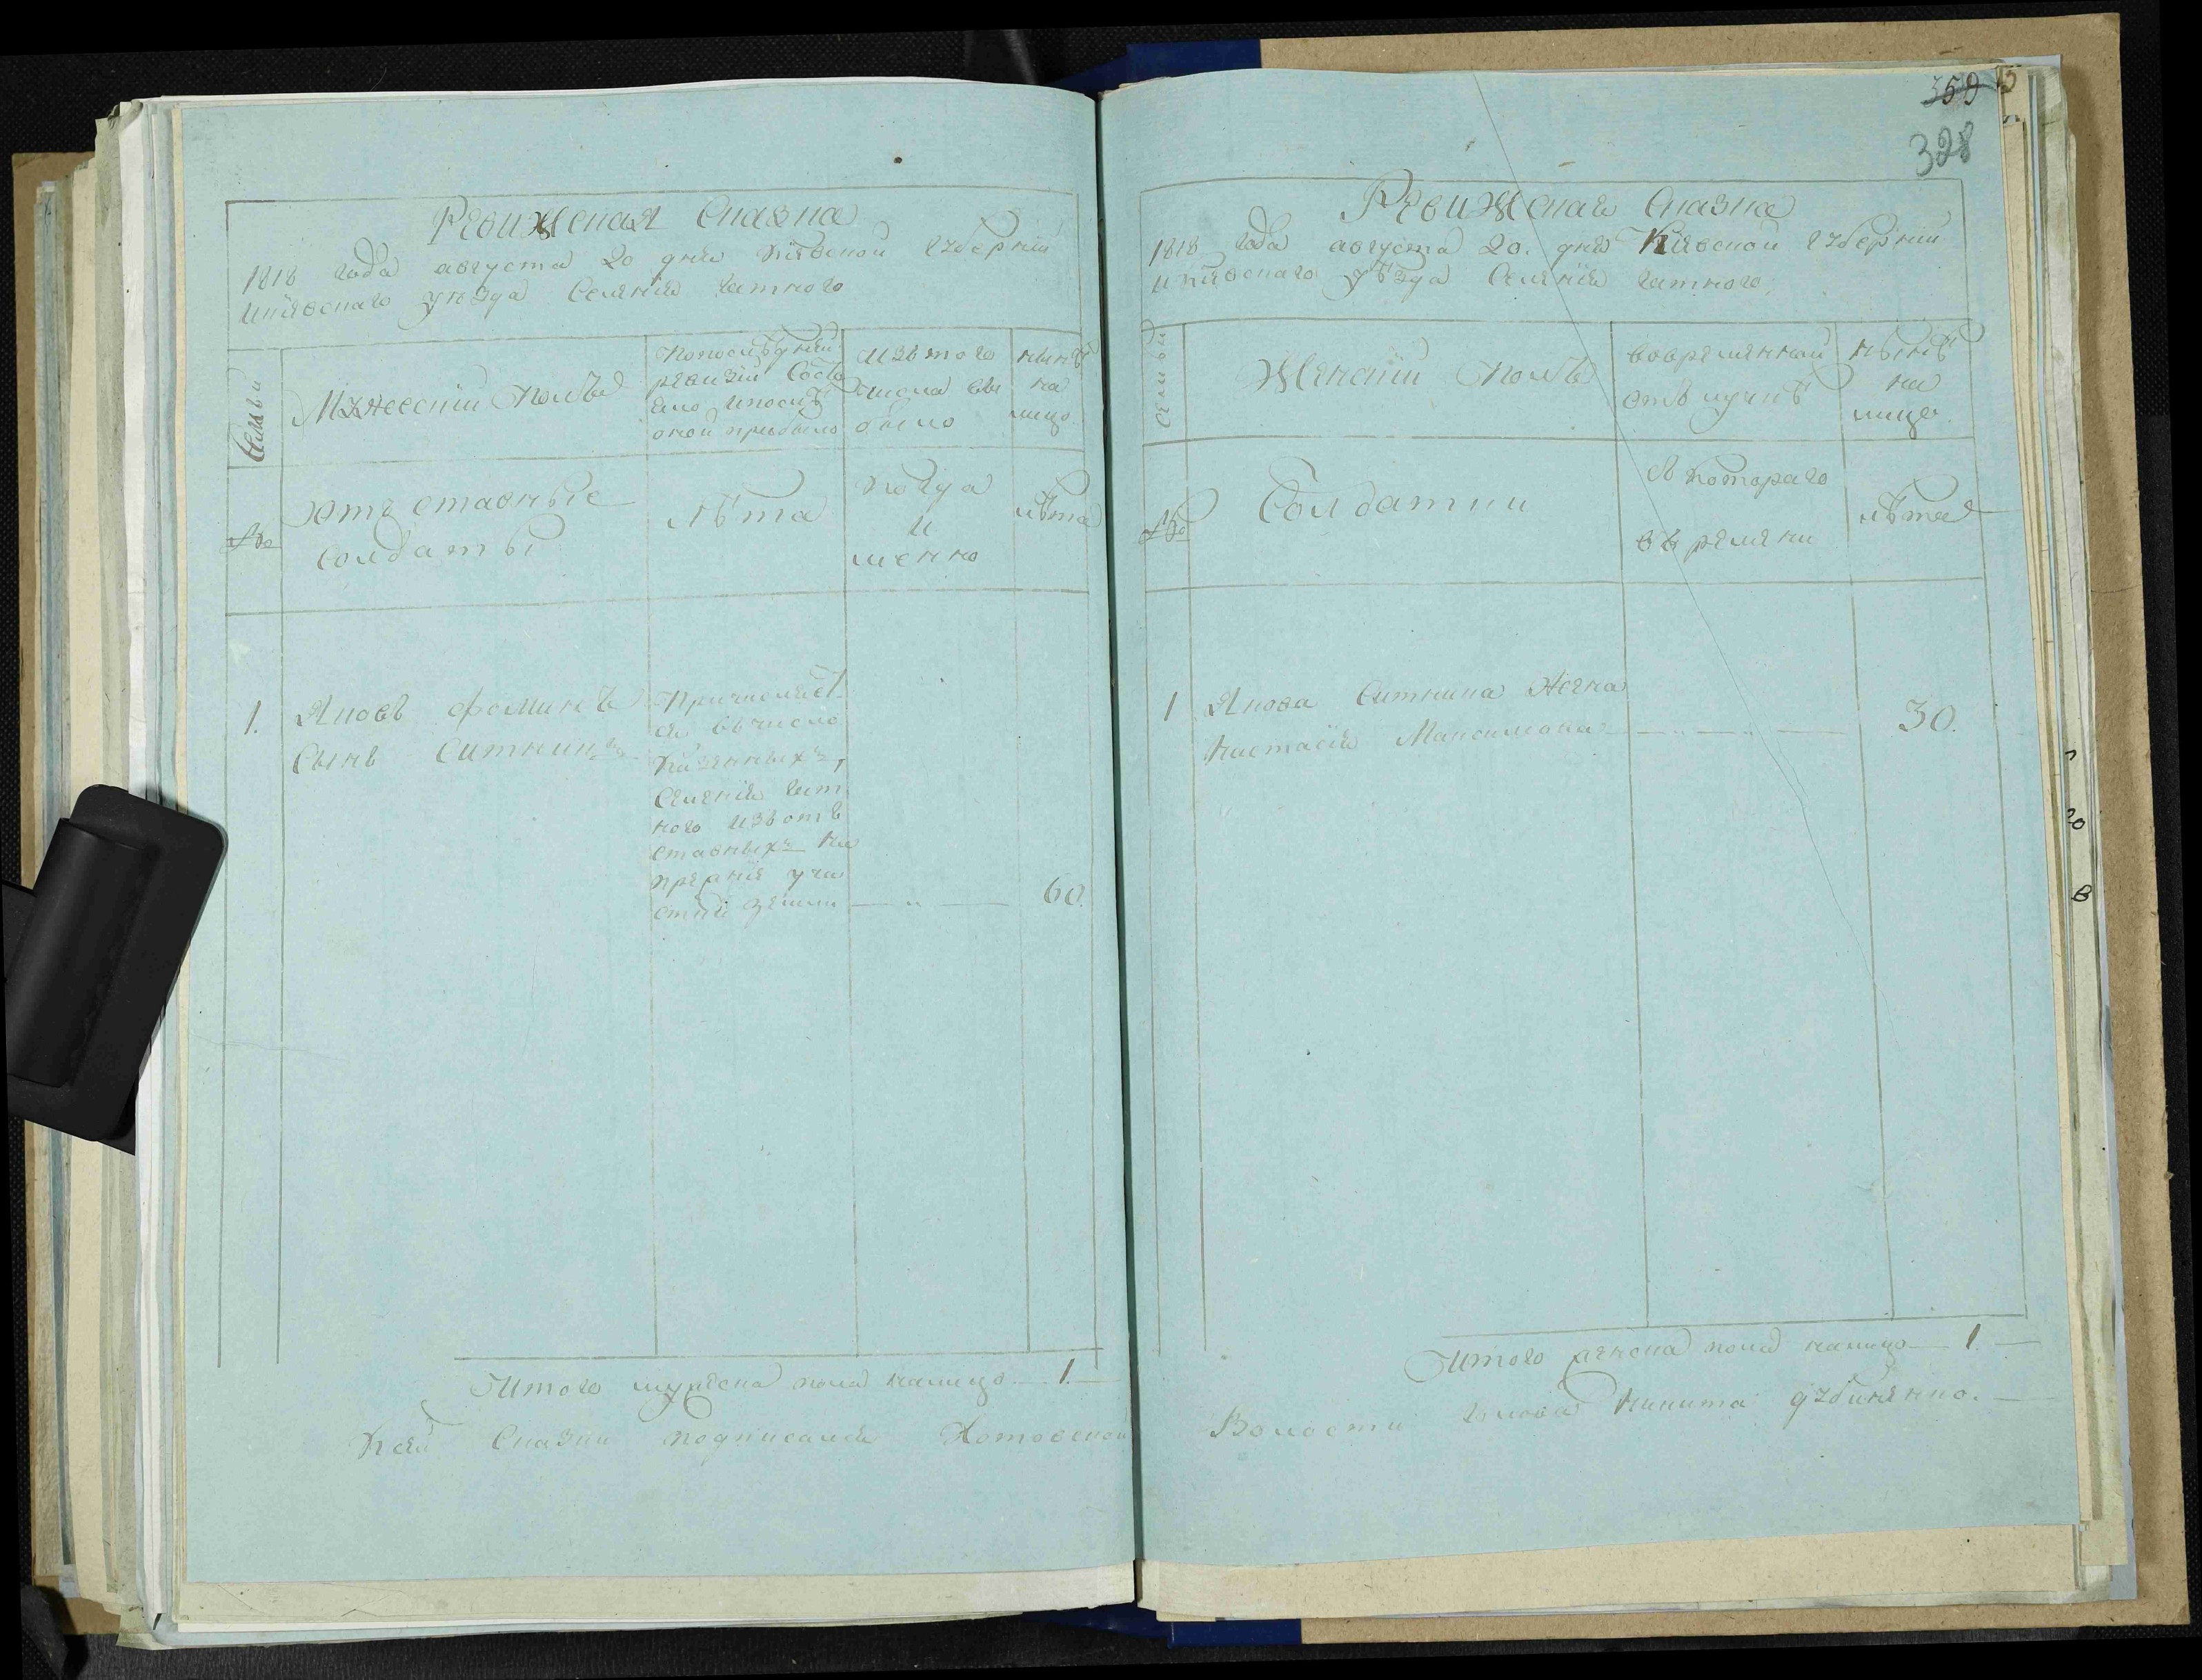 Ревижская Сказка
1818 года августа 20 дня Кіевской губерніи
икіевскаго уѣзда Селенія Гатного
Семьи
Мужескій Полъ
Попослѣдней
ревизіи Состо
яло ипослѣ
оной прибыло
Изътого
числа вы
было
нынѣ
на
лицо
№
Отъставные
Солдаты
лѣта
Когда
и
менно
лѣта
1.
Яковъ Фоминъ
Сынъ Ситникъ
Причисляет
ся въчисло
Казенныхъ,
Селенія Гат
ного изъотъ
ставныхъ на
земли
60.
Итого мужеска пола налицо 1.
Ксей Сказки подписался Хотовской
359
328
Ревижская Сказка
1818 года августа 20. дня Кіевской губерніи
икіевскаго уѣзда Селенія Гатного
Семьи
Женскій Полъ
вовременной
отълучкѣ
нынѣ
на
лице
№
Солдатки
Скотораго
въремени
лѣта
1
Якова Ситника Жена
Настасія Максимова
30.
Итого женска пола налицо 1.
Волости Голова Никита Дубиненко.